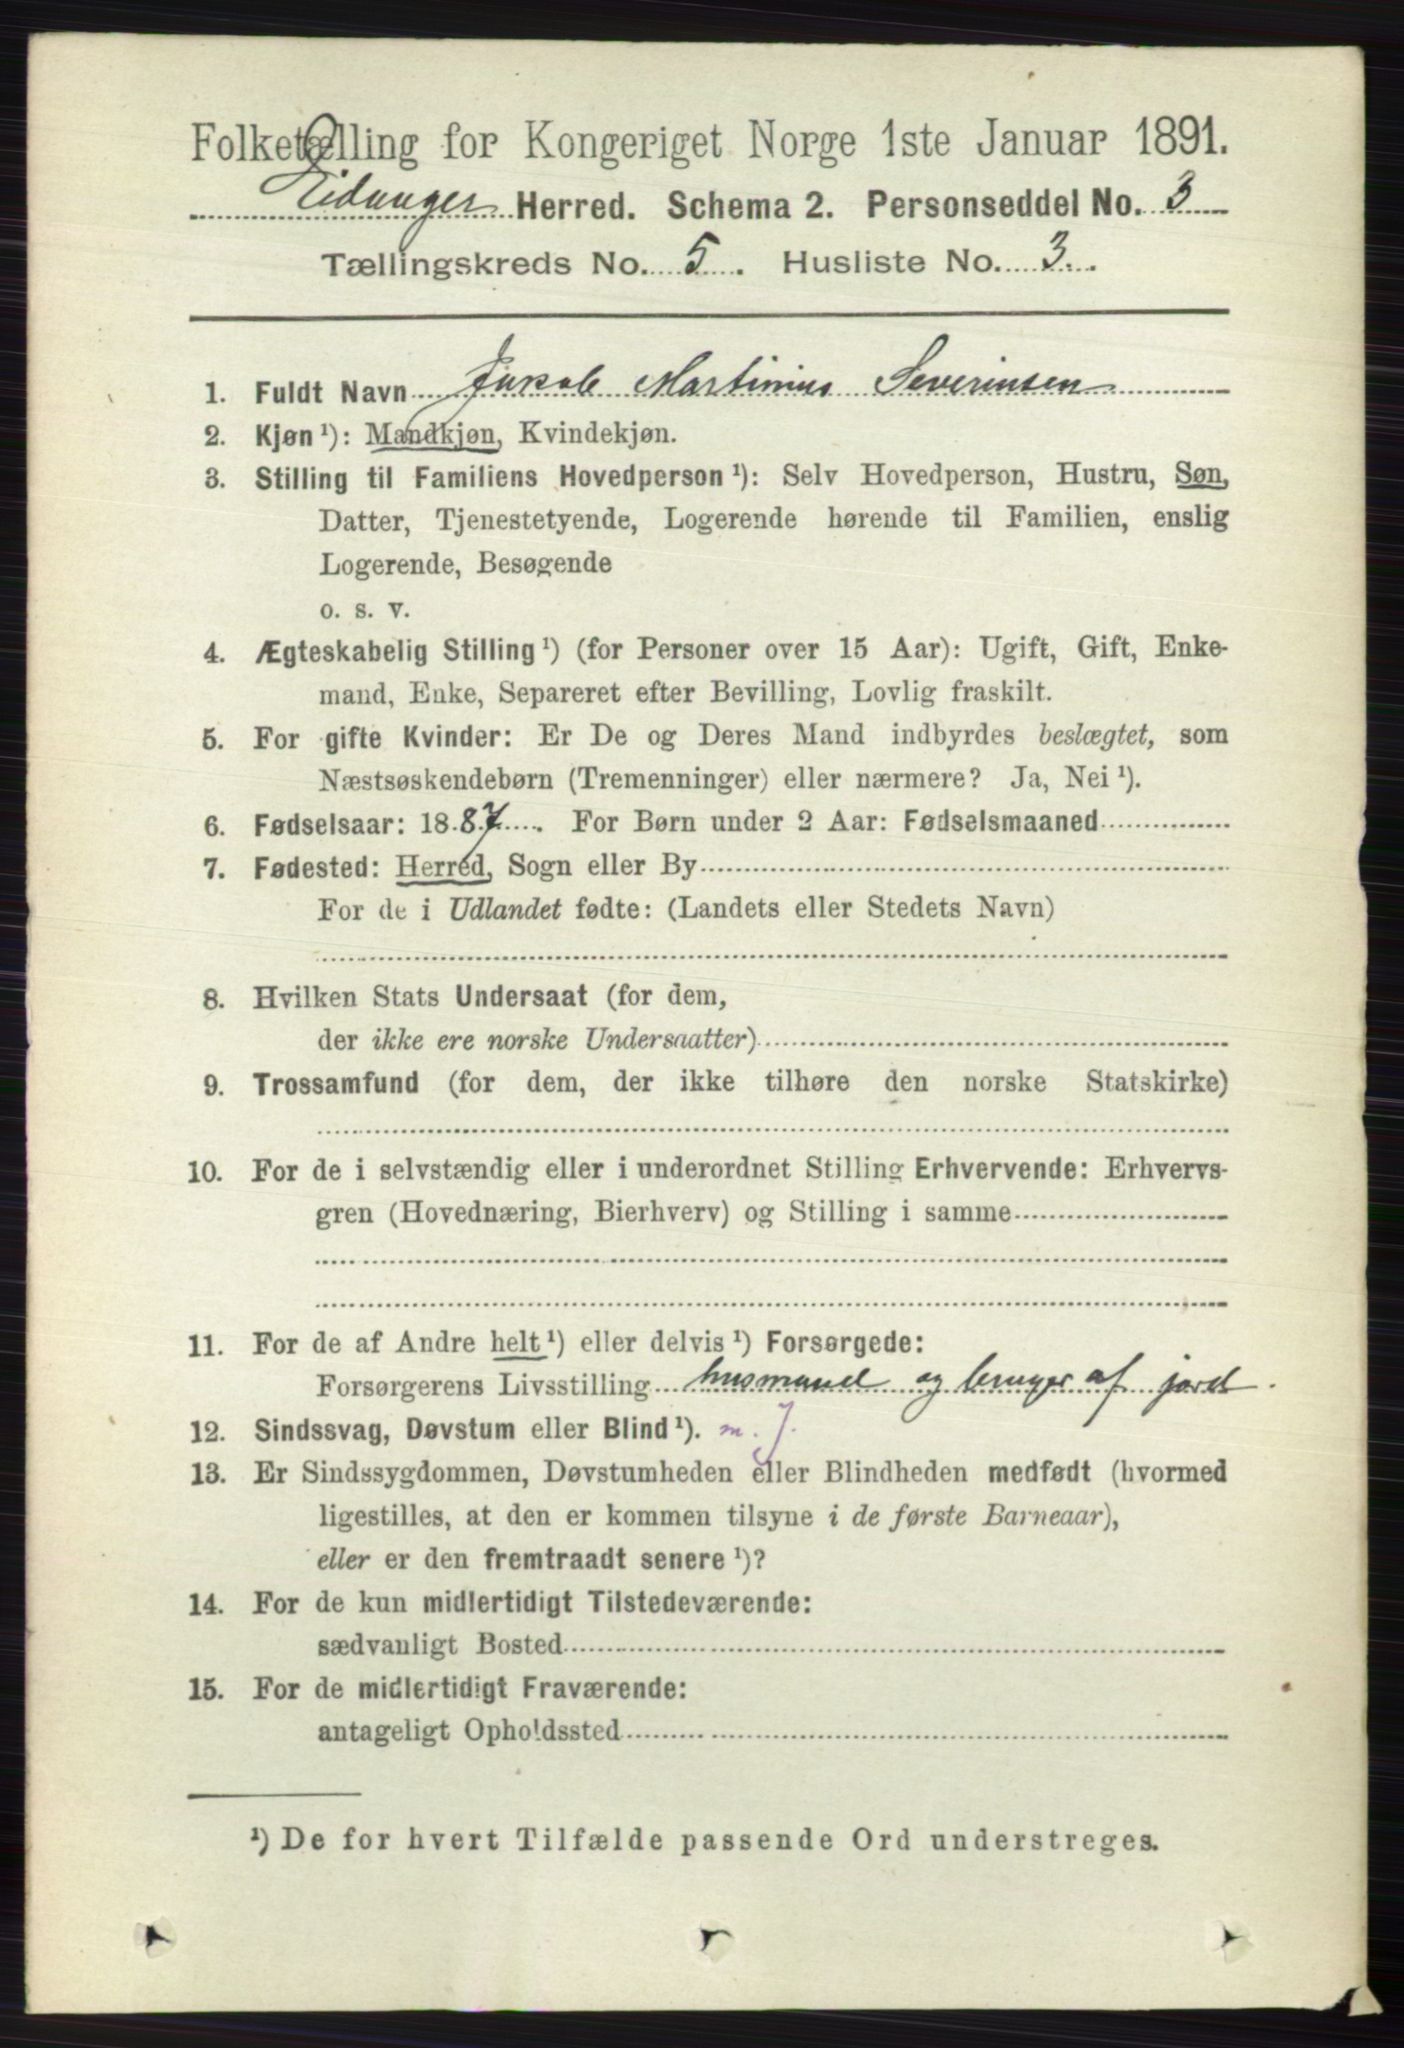 Folketælling for Kongeriget Norge 1ste Januar 1891.
Eidanger Herred. Schema 2. Personseddel No. 3
Tællingskreds No. 5. Husliste No. 3.
1. Fuldt Navn Jakob Martinius Severinsen
2. Kjøn ¹): Mandkjøn, Kvindekjøn.
3. Stilling til Familiens Hovedperson ¹): Selv Hovedperson, Hustru, Søn,
Datter, Tjenestetyende, Logerende hørende til Familien, enslig
Logerende, Besøgende
o. s. v.
4. Ægteskabelig Stilling ¹) (for Personer over 15 Aar): Ugift, Gift, Enke-
mand, Enke, Separeret efter Bevilling, Lovlig fraskilt.
5. For gifte Kvinder: Er De og Deres Mand indbyrdes beslægtet, som
Næstsøskendebørn (Tremenninger) eller nærmere? Ja, Nei ¹).
6. Fødselsaar: 1887. For Børn under 2 Aar: Fødselsmaaned
7. Fødested: Herred, Sogn eller By
For de i Udlandet fødte: (Landets eller Stedets Navn)
8. Hvilken Stats Undersaat (for dem,
der ikke ere norske Undersaatter)
9. Trossamfund (for dem, der ikke tilhøre den norske Statskirke)
10. For de i selvstændig eller i underordnet Stilling Erhvervende: Erhvervs-
gren (Hovednæring, Bierhverv) og Stilling i samme
11. For de af Andre helt ¹) eller delvis ¹) Forsørgede:
Forsørgerens Livsstilling husmand og bruger af jord.
12. Sindssvag, Døvstum eller Blind ¹). m. J.
13. Er Sindssygdommen, Døvstumheden eller Blindheden medfødt (hvormed
ligestilles, at den er kommen tilsyne i de første Barneaar),
eller er den fremtraadt senere ¹)?
14. For de kun midlertidigt Tilstedeværende:
sædvanligt Bosted
15. For de midlertidigt Fraværende:
antageligt Opholdssted
¹) De for hvert Tilfælde passende Ord understreges.